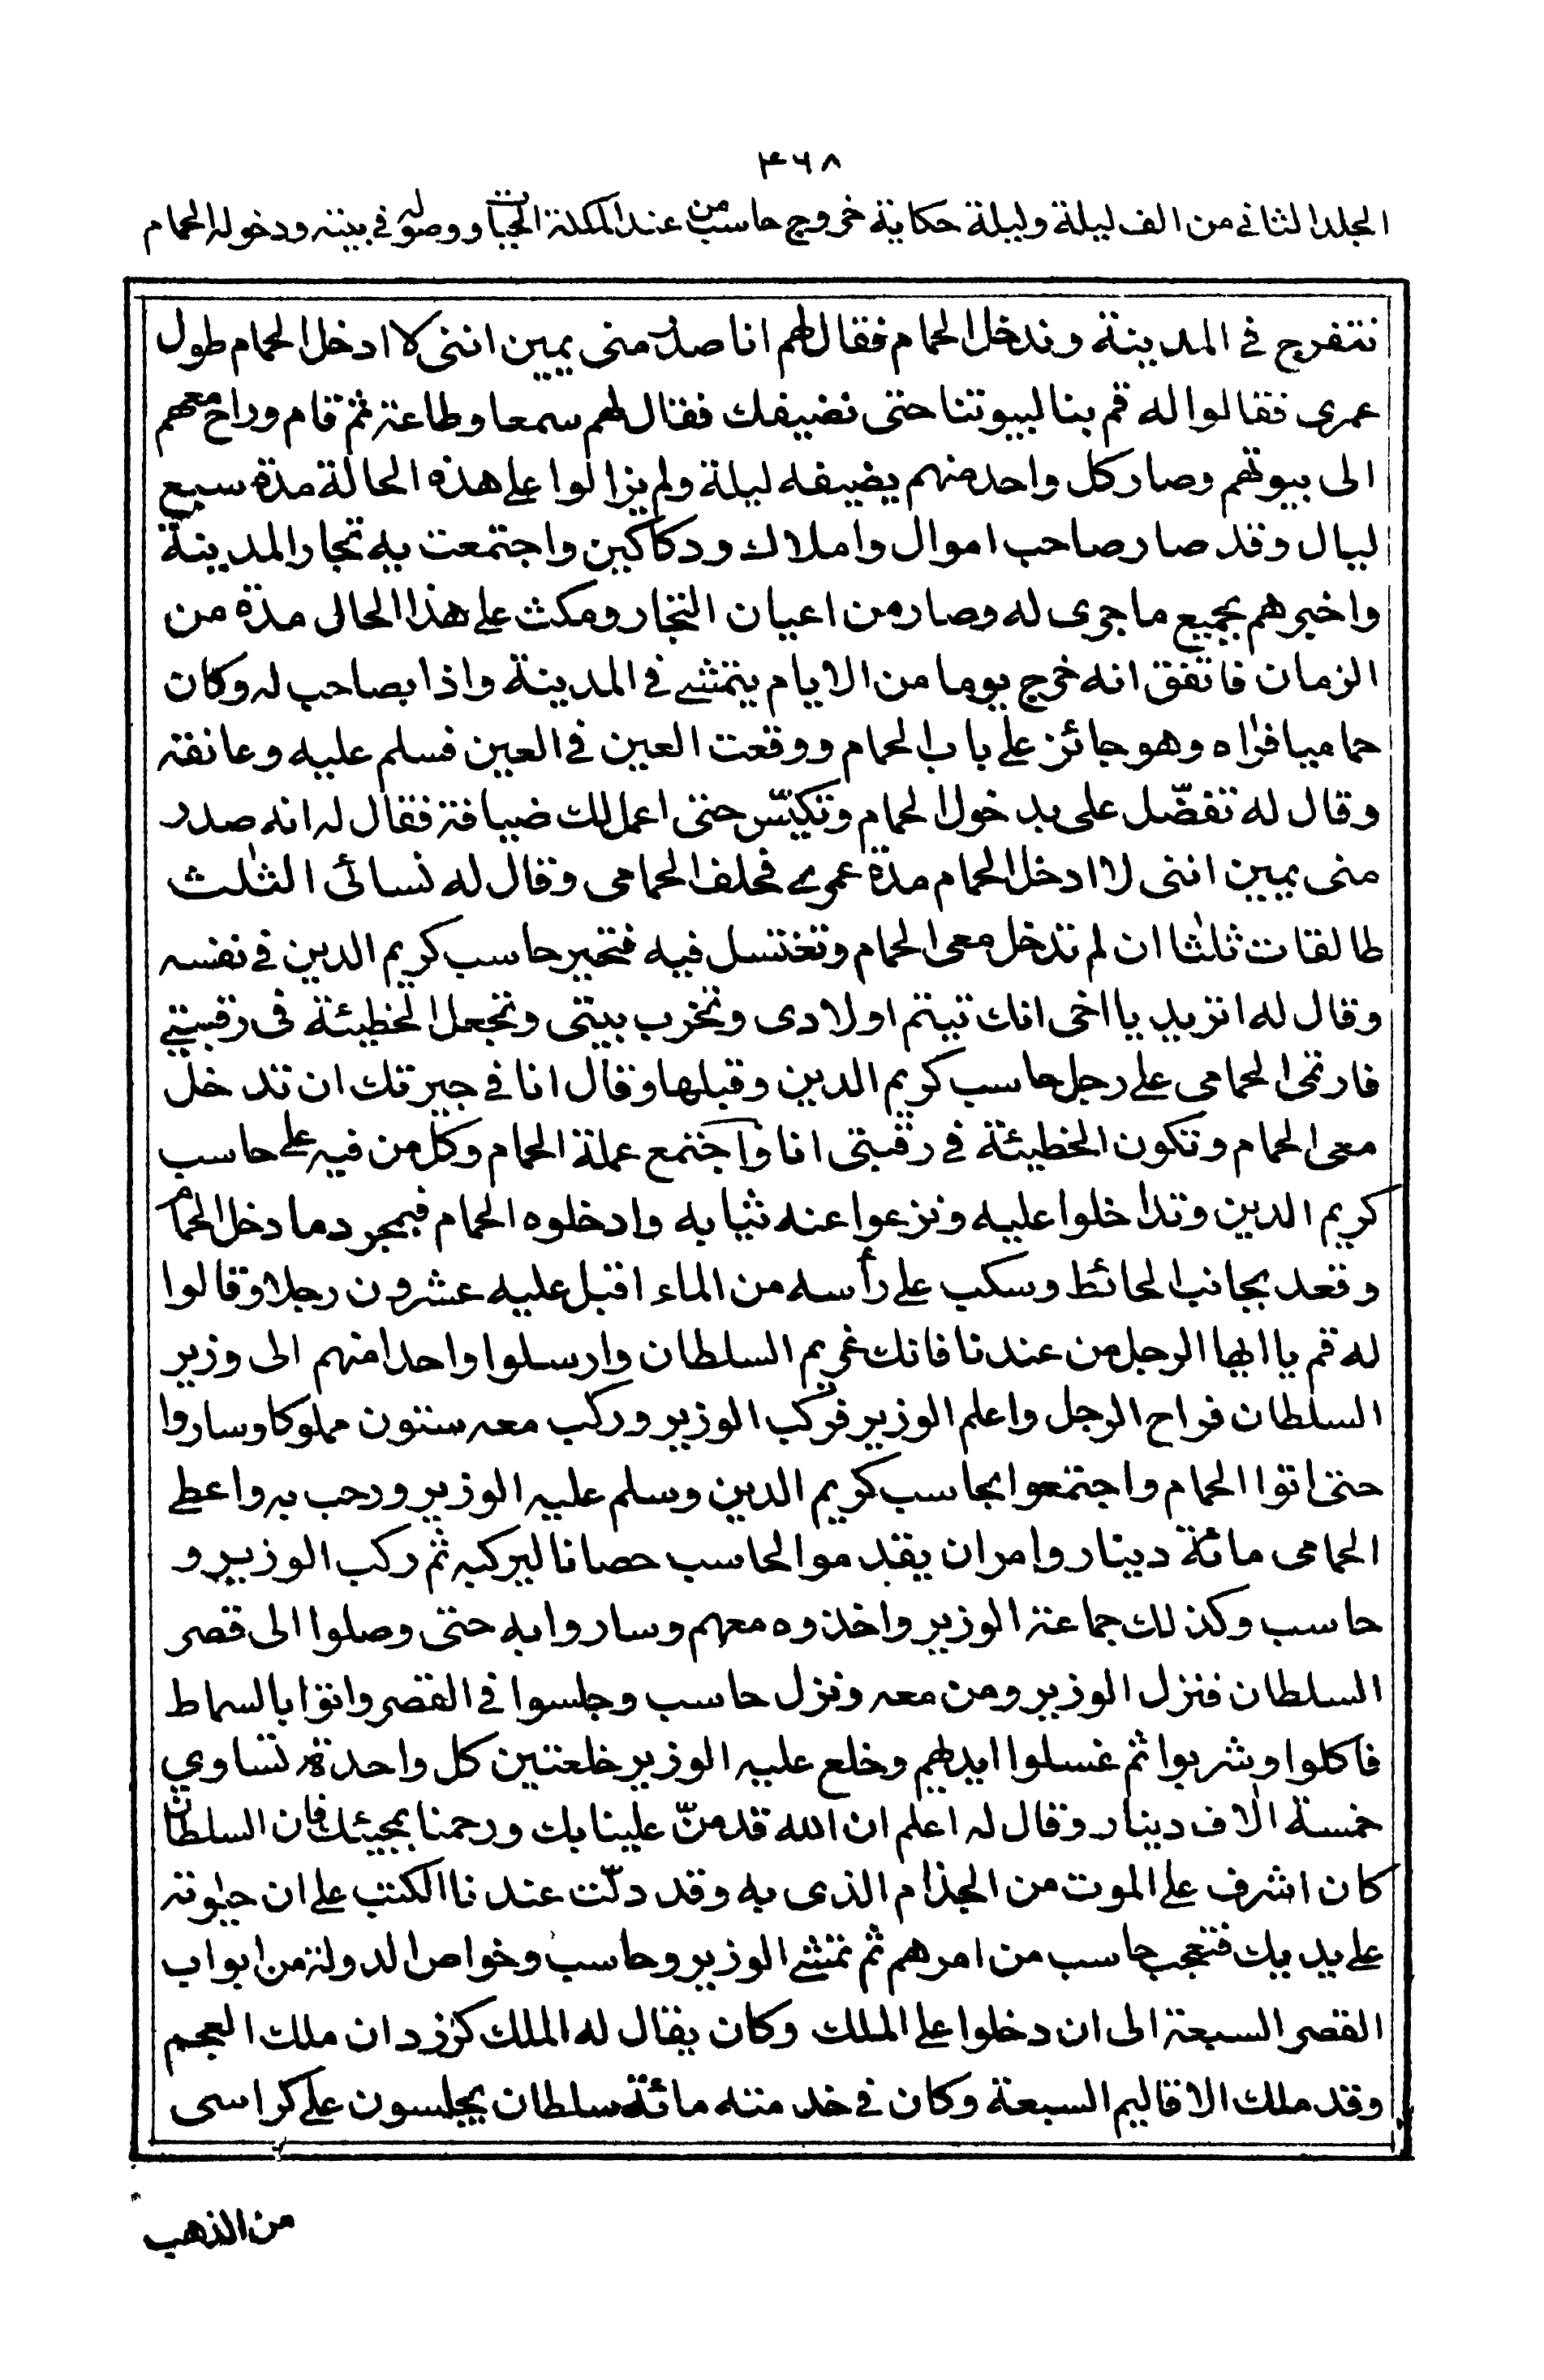 ۴۶۸
المجلد الثاني من الف ليلة وليلة حكاية خروج حاسب من عند الملكة الحيات ووصوله في بيته ودخوله الحمام
نتفرج في المدينة وندخل الحمام فقال لهم انا صدر منى يمين اننى لا ادخل الحمام طول
عمرى فقالوا له قم بنا لبيوتنا حتى نضيفك فقال لهم سمعا وطاعة ثم قام وراح معهم
الى بيوتهم وصار كل واحد منهم يضيفه ليلة ولم يزالوا على هذه الحالة مدة سبع
ليال وقد صار صاحب اموال واملاك ودكاكين واجتمعت به تجار المدينة
واخبرهم بجميع ما جرى له وصار من اعيان التجار ومكث على هذا الحالى مدة من
الزمان فاتفق انه خرج يوما من الايام يتمشى في المدينة واذا بصاحب له وكان
حماميا فراٰه وهو جائز على باب الحمام ووقعت العين في العين فسلم عليه وعانقه
وقال له تفضّل على بدخول الحمام وتكيّس حتى اعمل لك ضيافة فقال له انه صدر
منى يمين اننى لا ادخل الحمام مدة عمرى فحلف الحمامى وقال له نسائى الثلٰث
طالقات ثلٰثا ان لم تدخل معى الحمام وتغتسل فيه فتحير حاسب كريم الدين في نفسه
وقال له اتريد يا اخى انك تيتم اولادى وتخرب بيتى وتجعل الخطيئة فى رقبتي
فارتمى الحمامى على رجل حاسب كريم الدين وقبلها وقال انا في جيرتك ان تدخل
معى الحمام وتكون الخطيئة في رقبتى انا واجتمع عملة الحمام وكل من فيه على حاسب
كريم الدين وتداخلوا عليه ونزعوا عنه ثيابه وادخلوه الحمام فبمجرد ما دخل الحمام
وقعد بجانب الحائط وسكب على رأسه من الماء اقبل عليه عشرون رجلا وقالوا
له قم يا ايها الرجل من عندنا فانك غريم السلطان وارسلوا واحدا منهم الى وزير
السلطان فراح الرجل واعلم الوزير فركب الوزير وركب معه ستون مملوكا وساروا
حتى اتوا الحمام واجتمعوا بحاسب كريم الدين وسلم عليه الوزير ورحب به واعطى
الحمامى مائة دينار وامر ان يقدموا لحاسب حصانا ليركبه ثم ركب الوزير و
حاسب وكذلك جماعة الوزير واخذوه معهم وساروا به حتى وصلوا الى قصر
السلطان فنزل الوزير ومن معه ونزل حاسب وجلسوا في القصر واتوا بالسماط
فاكلوا وشربوا ثم غسلوا ايديهم وخلع عليه الوزير خلعتين كل واحدة تساوي
خمسة اٰلاف دينار وقال له اعلم ان الله قد منّ علينا بك ورحمنا بمجيئك فان السلطان
كان اشرف على الموت من الجذام الذى به وقد دلّت عندنا الكتب على ان حيٰوته
على يديك فتعجب حاسب من امرهم ثم تمشى الوزير وحاسب وخواص الدولة من ابواب
القصر السبعة الى ان دخلوا على الملك وكان يقال له الملك كرزدان ملك العجم
وقد ملك الاقاليم السبعة وكان في خدمته مائة سلطان يجلسون على كراسى
من الذهب